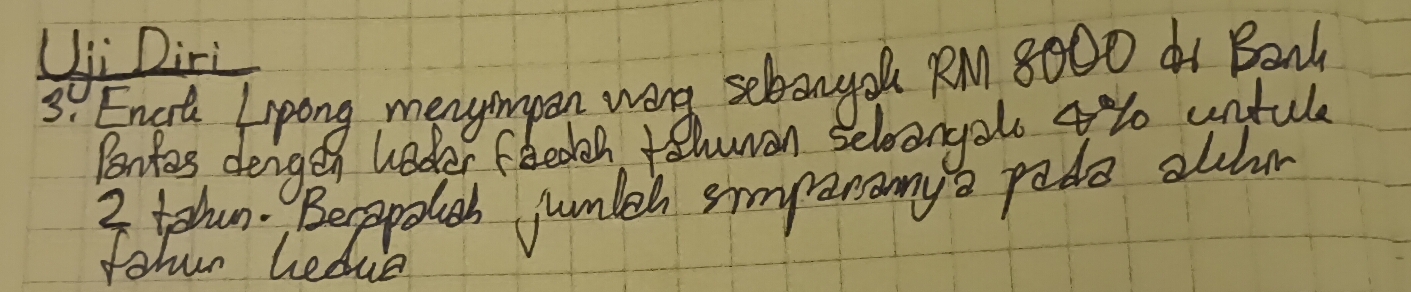 Uji Diri
3. Encik Lipong menyimpan wang sebanyak RM 8000 di Bank
Pantas dengan kadar faedah tahunan sebanyak 4% untuk
2 tahun. Berapakah jumlah simpanannya pada akhir
tahun kedua